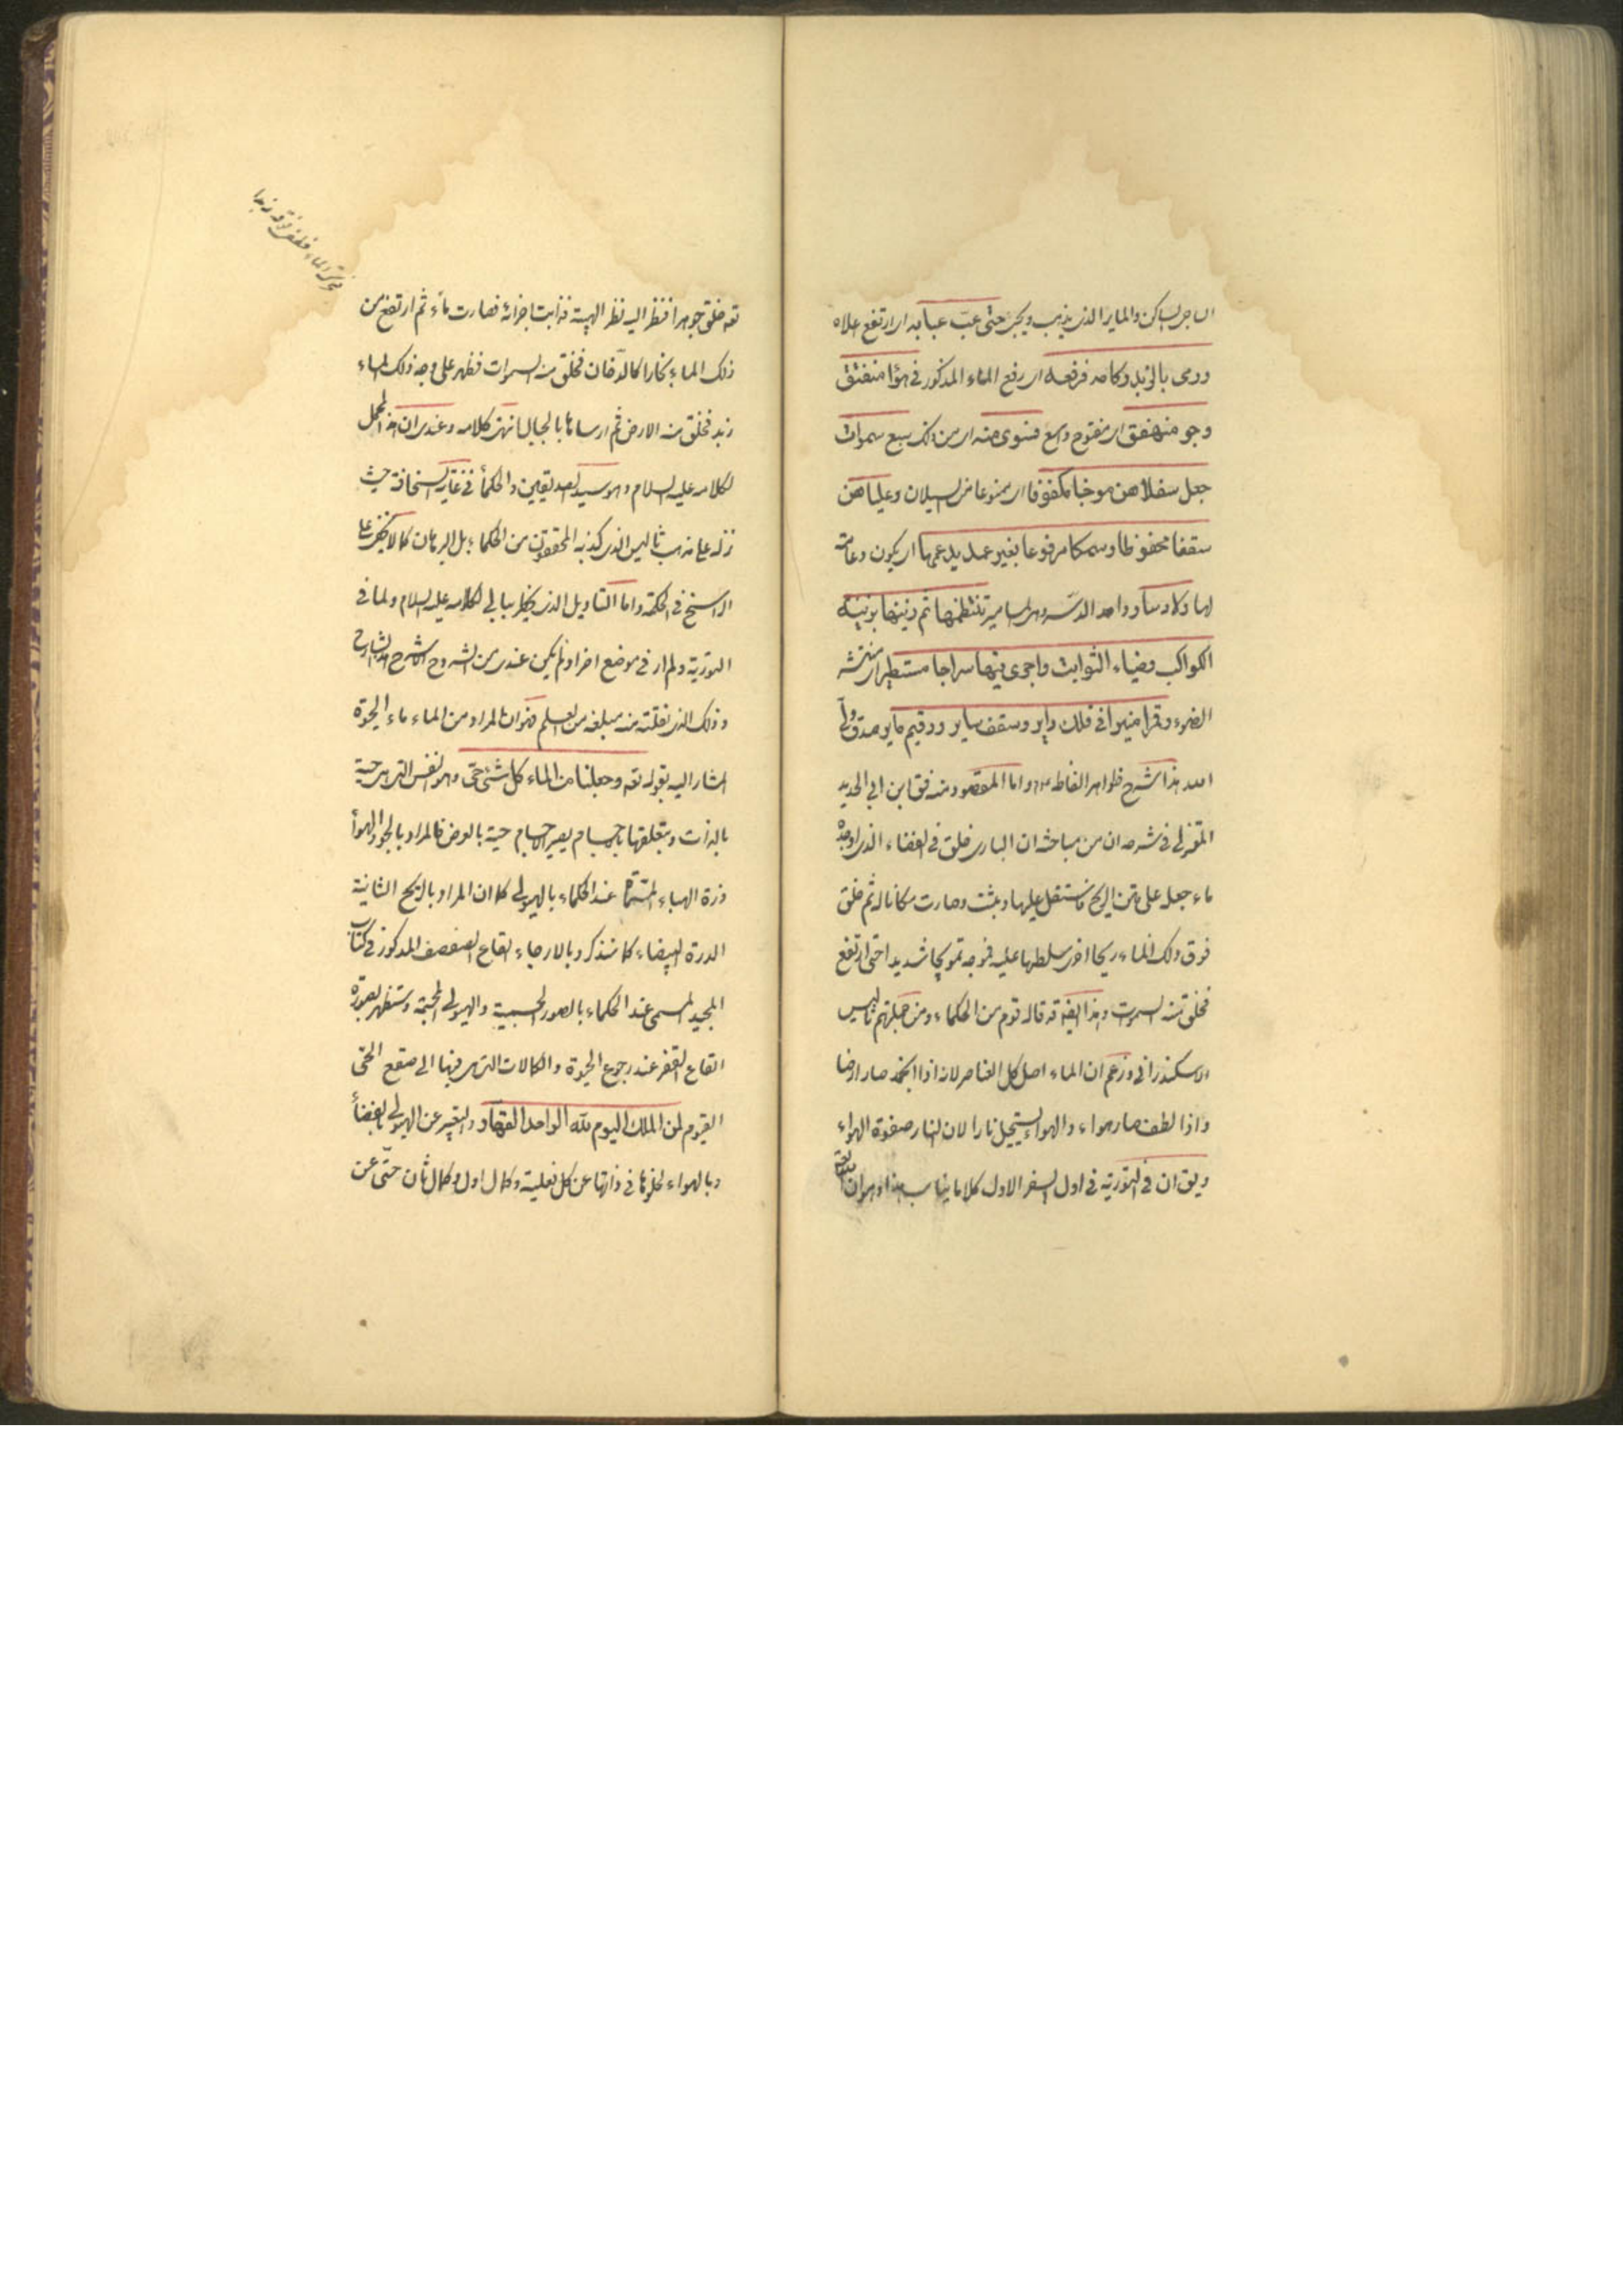 الساجى الساكن والماير الذى يذهب ويجى حتى عبّ عبابه اى ارتفع علاه
ورمى بالزبد ركامه فرفعه اى رفع الماء المذكور فى هواء منفتق
وجو منفهق اى مفتوح واسع فسوى منه اى من ذلك سبع سموات
جعل سفلاهن موجا مكفوفا اى ممنوعا من السيلان وعلياهن
سقفا محفوظا وسمكا مرفوعا بغير عمد يدعمها اى يكون دعامة
لها ولا دسار واحد الدسر وهى المسامير تنتظمها ثم زينها بزينة
الكواكب وضياء الثواقب واجرى فيها سراجا مستطيرا اى منتشر
الضوء وقمرا منيرا فى فلك داير وسقف ساير ورقيم ماير صدق ولى
الله هذا شرح ظواهر الفاظه واما المقصود منه فق ابن ابى الحديد
المعتزلى فى شرحه ان من مباحثه ان البارى خلق فى الفضاء الذى اوجده
ماء جعله على متن الريح فاستقل عليها وثبت وصارت مكانا له ثم خلق
فوق ذلك الماء ريحا اخرى سلطها عليه فموجه تمويجا شديدا حتى ارتفع
فخلق منه السموات وهذا ايضا قد قاله قوم من الحكماء ومن جملتهم ثاليس
الاسكندرانى وزعم ان الماء اصل كل العناصر لانه اذا انجمد صار ارضا
واذا لطف صار هواء والهواء يستحيل نارا لان النار صفوة الهواء
ويق ان فى التورية فى اول السفر الاول كلاما يناسب هذا وهو ان الله
تعه خلق جوهرا فنظر اليه نظر الهيبة فذابت اجزائه فصارت ماء ثم ارتفع من
ذلك الماء بخارا كالدخان فخلق منه السموات فظهر على وجه ذلك الماء
زبد فخلق منه الارض ثم ارساها بالجبال انتهى كلامه وعندى ان هذا المحمل
لكلامه عليه السلام وهو سيد الصديقين والحكماء فى غاية السخافة حيث
نزله على مذهب ثاليس الذى كذبه المحققون من الحكماء بل البرهان كما لا يخفى على
الراسخ فى الحكمة واما التاويل الذى يخطر ببالى لكلامه عليه السلام ولما فى
التورية ولم ار فى موضع اخر ولم يكن عندى من الشروح الا شرح هذا الشارح
وذلك الذى نقلته منه مبلغه من العلم فهو ان المراد من الماء ماء الحيوة
المشار اليه بقوله تعه وجعلنا من الماء كل شئ حىّ وهو النفس التى هى حية
بالذات وبتعلقها بالاجسام يصير الاجسام حية بالعرض فالمراد بالجو والهواء
ذرة الهباء المسماة عند الحكماء بالهيولى كما ان المراد بالريح الثانية
الدرة البيضاء كما سنذكر وبالارجاء القاع الصفصف المذكور فى كتابه
المجيد المسمى عند الحكماء بالصور الجسمية والهيولى المجسمة وستظهر بصورة
القاع القفر عند رجوع الحيوة والكمالات التى هى فيها الى صقع الحىّ
القيوم لمن الملك اليوم لله الواحد القهار والتعبير عن الهيولى بالفضاء
وبالهواء لخلوها فى ذاتها عن كل فعلية وكمال اول وكمال ثان حتى عن